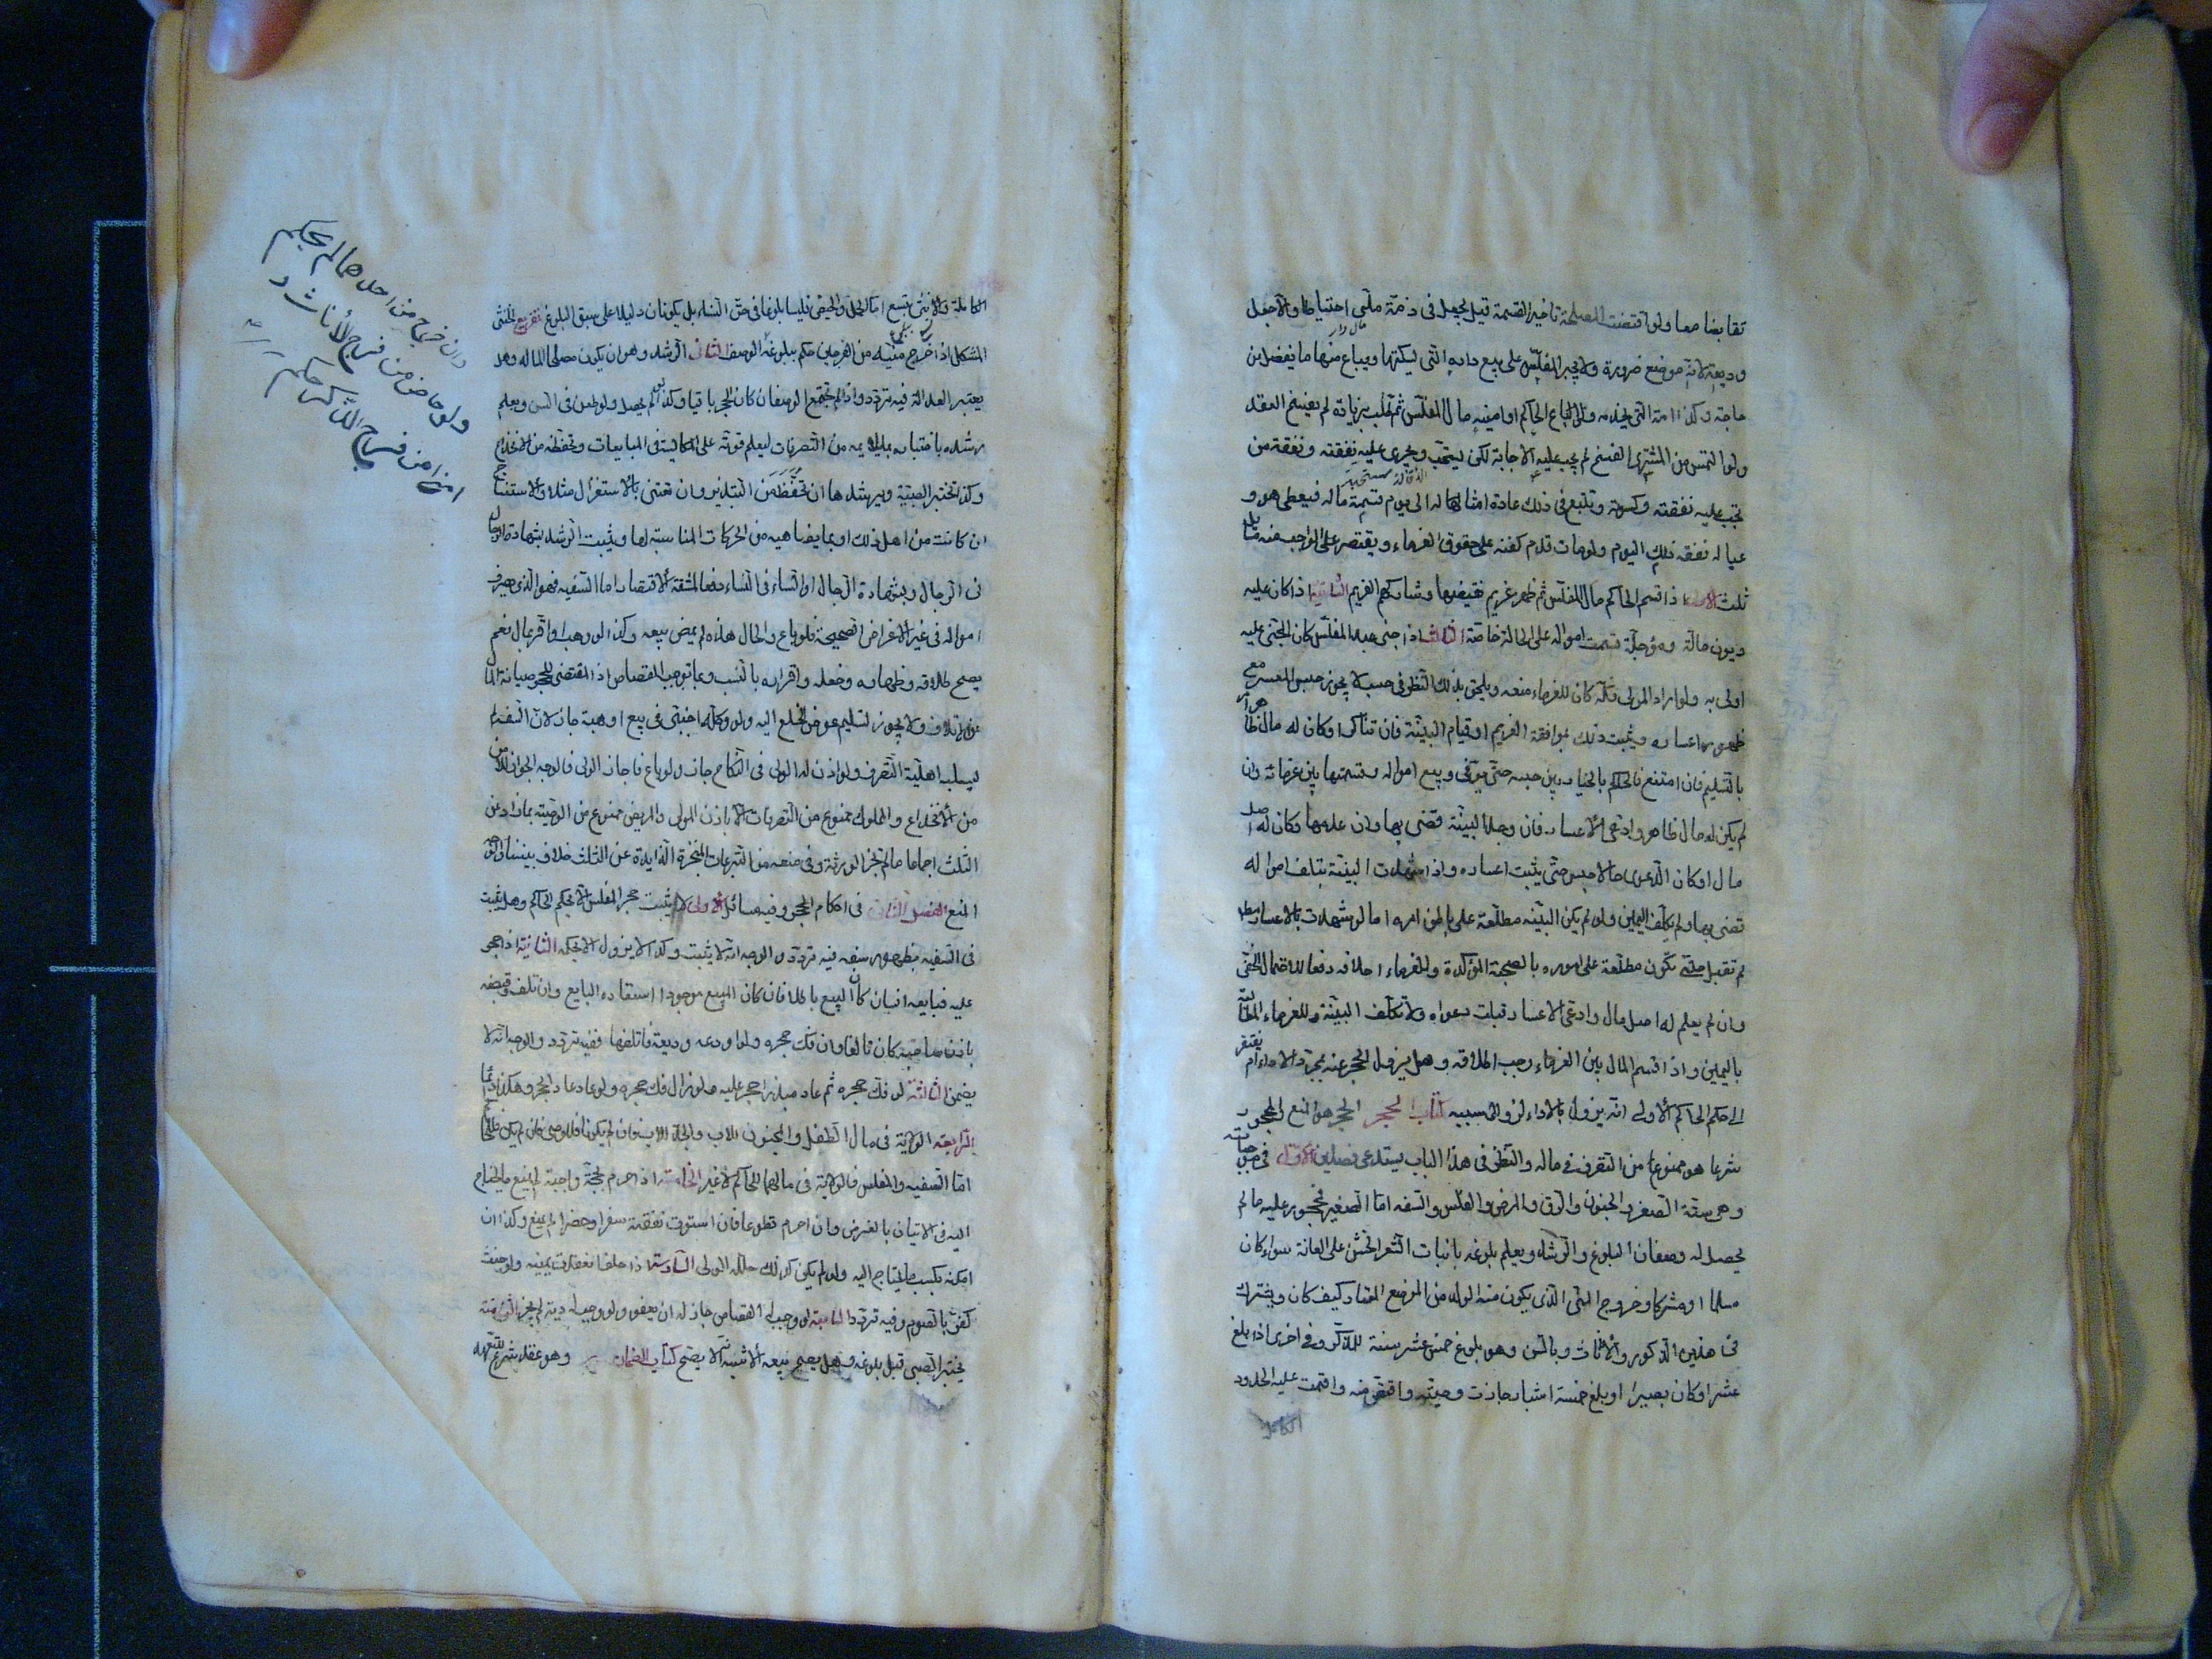 تقابضا معا ولو اقتضت المصلحة تاخير القسمة قيل يجعل فى ذمة ملى احتياطا والا جعل
وديعة لانه موضع ضرورة ولا يجبر المفلس على بيع داره التى يسكنها ويباع منها ما يفضل عن
حاجته وكذا امته التى تخدمه ولو باع الحاكم او امينه مال المفلس ثم طلب بزيادة لم يفسخ العقد
ولو التمس من المشترى الفسخ لم يجب عليه الاجابة لكن يستحب ويجرى عليه نفقته ونفقة من
تجب عليه نفقته وكسوته ويتبع فى ذلك عادة امثاله الى يوم قسمة ماله فيعطى هو و
عياله نفقة ذلك اليوم ولو مات قدم كفنه على حقوق الغرماء ويقتصر على الواجب منه مسائل
ثلث الاولى اذا قسم الحاكم مال المفلس ثم ظهر غريم نقضها وشاركهم الغريم الثانية اذا كان عليه
ديون حالة ومؤجلة قسمت امواله على الحالة خاصة الثالثة اذا جنى عبد المفلس كان المجنى عليه
اولى به ولو اراد المولى فكه كان للغرماء منعه ويلحق بذلك النظر فى حبسه لا يجوز حبس المعسر مع
ظهور اعساره ويثبت ذلك بموافقة الغريم او قيام البينة فان تناكرا وكان له مال ظاهر امر
بالتسليم فان امتنع فالحاكم بالخيار بين حبسه حتى يوفى وبيع امواله وقسمتها بين غرمائه وان
لم يكن له مال ظاهر وادعى الاعسار فان وجد البينة قضى بها وان عدمها وكان له اصل
مال او كان الدعوى مالا حبس حتى يثبت اعساره واذا شهدت البينة بتلف امواله
قضى بها ولم يكلف اليمين ولو لم يكن البينة مطلعة على باطن امره اما لو شهدت بالاعسار مطلقا
لم تقبل حتى تكون مطلعة على اموره بالصحبة المؤكدة وللغرماء احلافه دفعا للاحتمال الخفى
وان لم يعلم له اصل مال وادعى الاعسار قبلت دعواه ولا تكلف البينة وللغرماء المطالبة
باليمين واذا قسم المال بين الغرماء وجب اطلاقه وهل يزول الحجر عنه بمجرد الاداء ام يفتقر
الى حكم الحاكم الاولى انه يزول بالاداء لزوال سببه كتاب الحجر الحجر هو المنع والمحجور
شرعا هو ممنوع من التصرف فى ماله والنظر فى هذا الباب يستدعى فصلين الاول فى موجباته
وهى ستة الصغر والجنون والرق والمرض والفلس والسفه اما الصغير فمحجور عليه ما لم
يحصل له وصفان البلوغ والرشد ويعلم بلوغه بانبات الشعر الخشن على العانة سواء كان
مسلما او مشركا وخروج المنى الذى يكون منه الولد من الموضع المعتاد كيف كان ويشترك
فى هذين الذكور والاناث وبالسن وهو بلوغ خمس عشر سنة للذكر وفى اخرى اذا بلغ
عشرا وكان بصيرا او بلغ خمسة اشبار جازت وصيته واقتص منه واقيمت عليه الحدود
الكاملة
الكاملة والانثى بتسع اما الحمل والحيض فليسا بلوغا فى حق النساء بل يكونان دليلا على سبق البلوغ تفريع الخنثى
المشكل اذا خرج منيه من الفرجين حكم ببلوغه الوصف الثانى الرشد وهو ان يكون مصلحا لماله وهل
يعتبر العدالة فيه تردد واذا لم يجتمع الوصفان كان الحجر باقيا وكذا لو لم يحصل ولو طعن فى السن ويعلم
رشده باختباره بما يلايمه من التصرفات ليعلم قوته على المكايسة فى المبايعات وتحفظه من الانخداع
وكذا تختبر الصبية ويرشدها ان تتحفظ من التبذير وان تعتنى بالاستغزال مثلا والاستنتاج
ان كانت من اهل ذلك او بما يضاهيه من الحركات المناسبة لها ويثبت الرشد بشهادة الرجال
فى الرجال وبشهادة الرجال او النساء فى النساء دفعا لمشقة الاقتصار اما السفيه فهو الذى يصرف
امواله فى غير الاغراض الصحيحة فلو باع والحال هذه لم يمض بيعه وكذا لو وهب او اقر بمال نعم
يصح طلاقه وظهاره وخلعه واقراره بالنسب وبما يوجب القصاص اذ المقتضى للحجر صيانة المال
عن الاتلاف ولا يجوز تسليم عوض الخلع اليه ولو وكله اجنبى فى بيع او هبة جاز لان السفه لم
يسلبه اهلية التصرف ولو اذن له الولى فى النكاح جاز ولو باع فاجاز الولى فالوجه الجواز للامن
من الانخداع والمملوك ممنوع من التصرفات الا باذن المولى والمريض ممنوع من الوصية بما زاد عن
الثلث اجماعا ما لم تجز الورثة وفى منعه من التبرعات المنجزة الزايدة عن الثلث خلاف بيننا والوجه
المنع الفصل الثانى فى احكام الحجر وفيه مسائل الاولى لا يثبت حجر المفلس الا بحكم الحاكم وهل يثبت
فى السفيه بظهور سفهه فيه تردد والوجه انه لا يثبت وكذا لا يزول الا بحكمه الثانية اذا حجر
عليه فبايعه انسان كان البيع باطلا فان كان المبيع موجودا استعاده البايع وان تلف وقبضه
باذن صاحبه كان تالفا وان فك حجره ولو اودعه وديعة فاتلفها ففيه تردد والوجه انه لا
يضمن الثالثة لو فك حجره ثم عاد مبذرا حجر عليه ولو زال فك حجره ولو عاد عاد الحجر وهكذا دائما
الرابعة الولاية فى مال الطفل والمجنون للاب والجد للاب وان لم يكونا فللوصى فان لم يكن فللحاكم
اما السفيه والمفلس فالولاية فى مالهما للحاكم لا غير الخامسة اذا احرم بحجة واجبة لم يمنع مما يحتاج
اليه فى الاتيان بالفرض وان احرم تطوعا فان استوت نفقته سفرا وحضرا لم يمنع وكذا ان
امكنه تكسب ما يحتاج اليه ولو لم يكن كذلك حلله الولى السادسة اذا حلف انعقدت يمينه ولو حنث
كفر بالصوم وفيه تردد السابعة لو وجب له القصاص جاز له ان يعفو ولو وجب له دية لم يجز الثامنة
يختبر الصبى قبل بلوغه وهل يصح بيعه الاشبه انه لا يصح كتاب الضمان وهو عقد شرع للتعهد
وان خرج من احدهما لم يحكم
ولو حاض من فرج الاناث و
امنى من فرج الذكر حكم